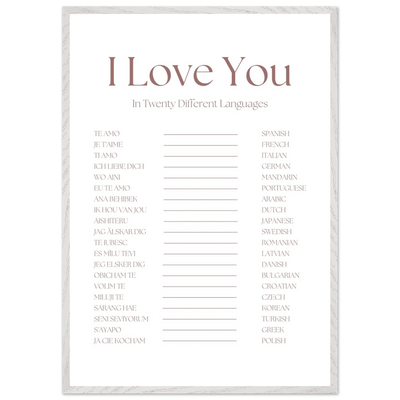 I Love You
In Twenty Different Languages
TE AMO SPANISH
JE T'AIME FRENCH
TI AMO ITALIAN
ICH LIEBE DICH GERMAN
WO AI NI MANDARIN
EU TE AMO PORTUGUESE
ANA BEHIBEK ARABIC
IK HOU VAN JOU DUTCH
AISHITERU JAPANESE
JAG ÄLSKAR DIG SWEDISH
TE IUBESC ROMANIAN
ES MĪLU TEVI LATVIAN
JEG ELSKER DIG DANISH
OBICHAM TE BULGARIAN
VOLIM TE CROATIAN
MILUJI TE CZECH
SARANG HAE KOREAN
SENI SEVIYORUM TURKISH
S'AYAPO GREEK
JA CIE KOCHAM POLISH